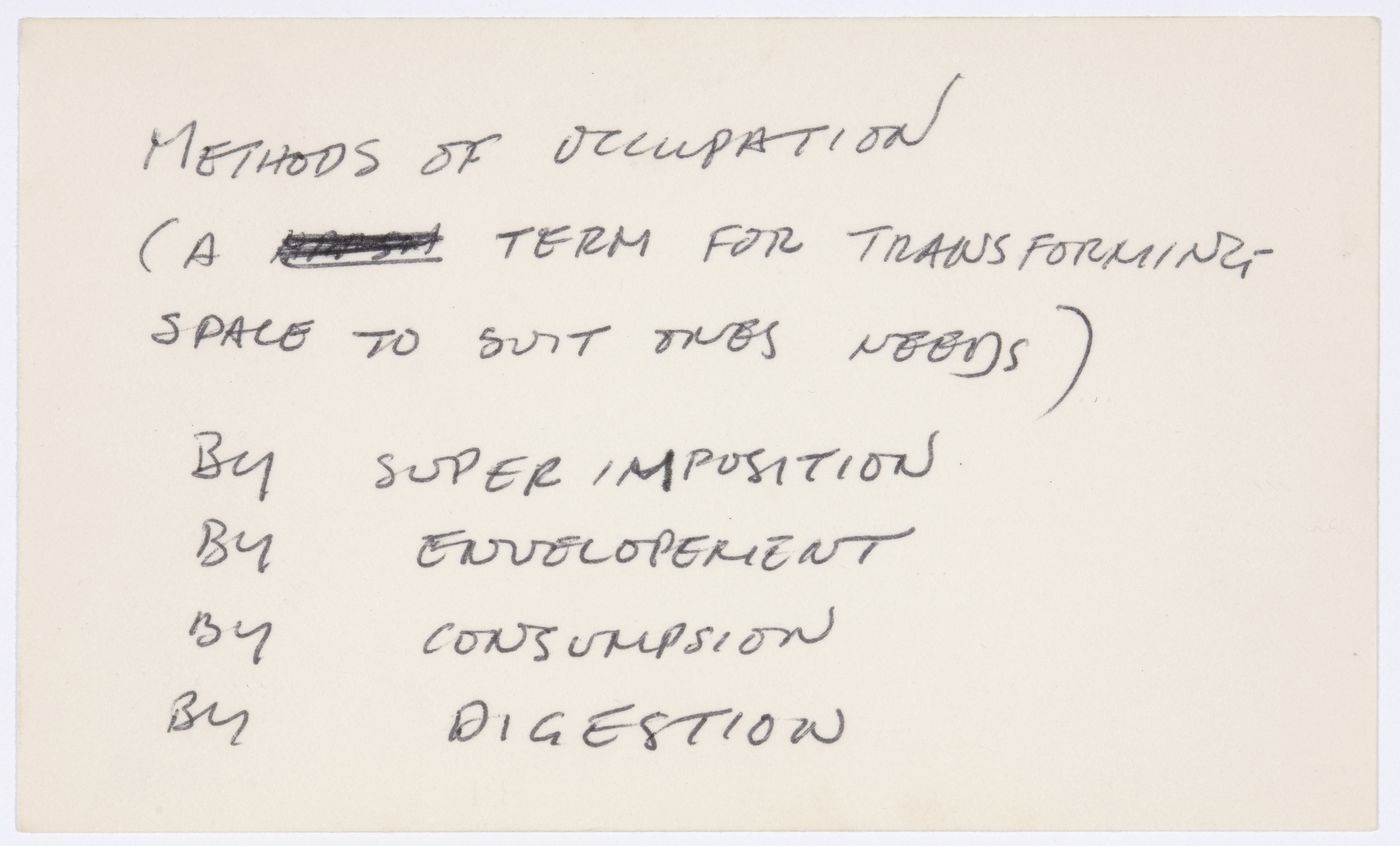 METHODS OF OCCUPATION
(A TERM FOR TRANSFORMING
SPACE TO SUIT ONES NEEDS)
BY SUPER IMPOSITION
BY ENVELOPEMENT
BY CONSUMPSION
BY DIGESTION